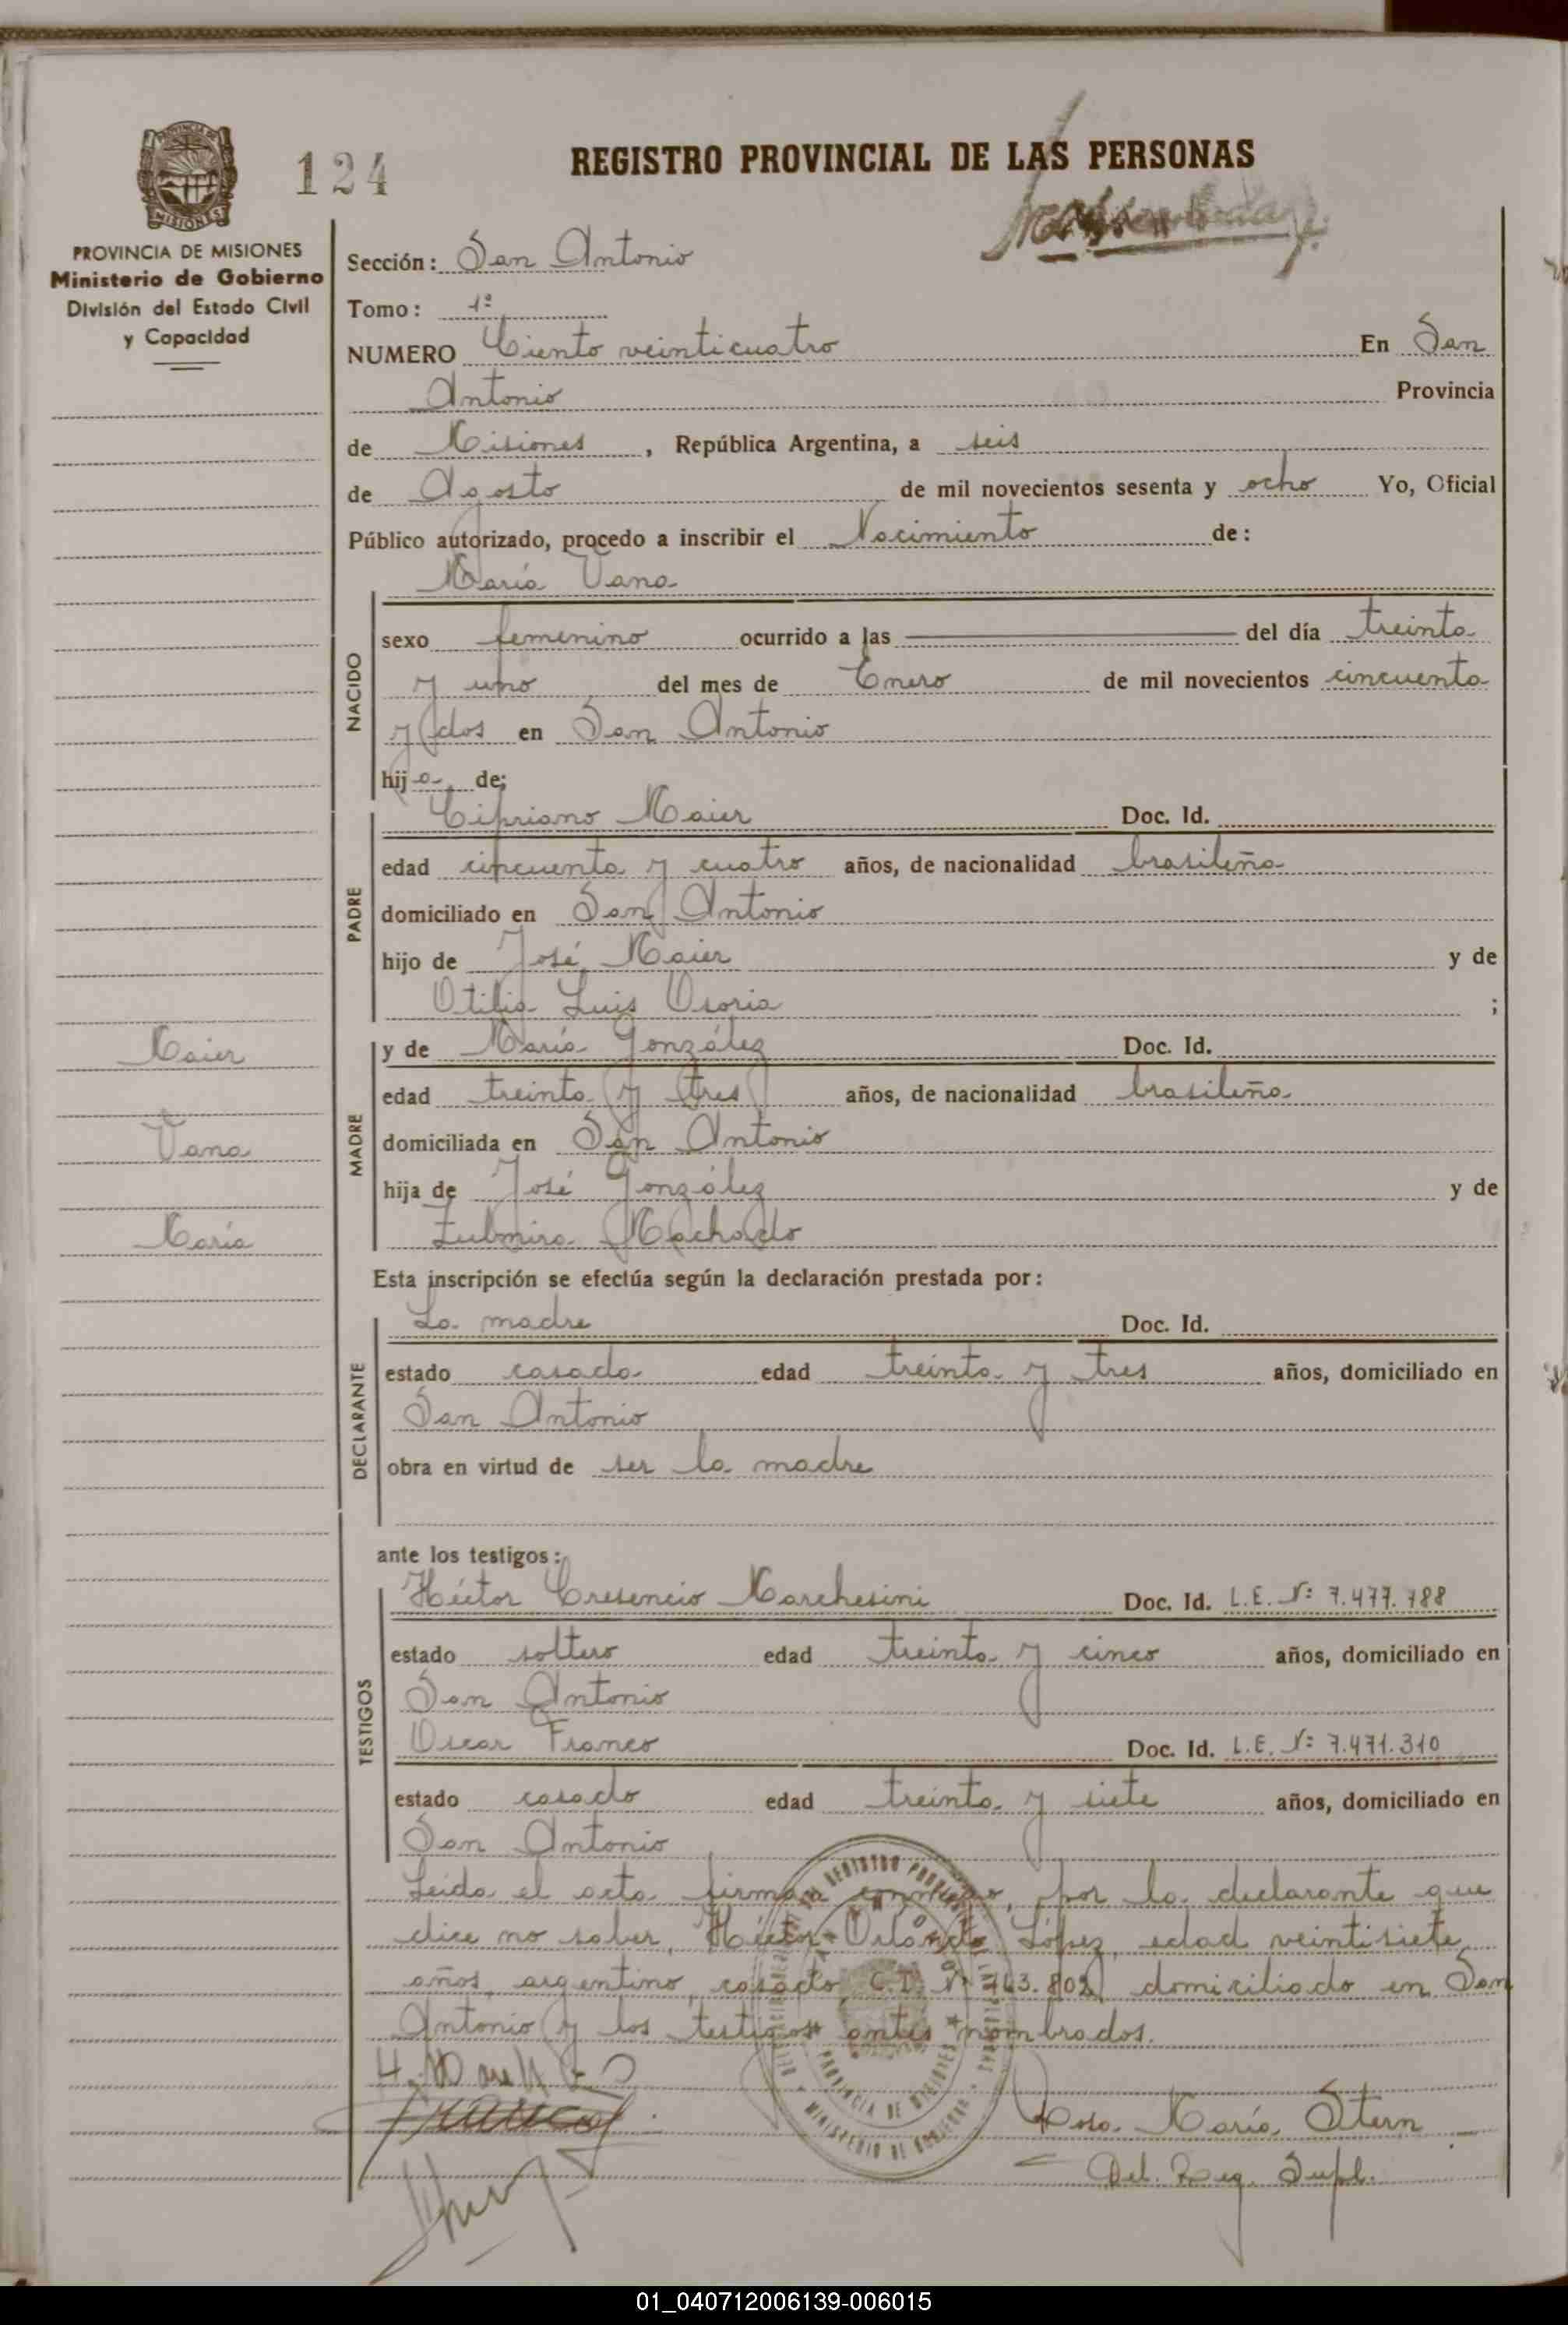 124
REGISTRO PROVINCIAL DE LAS PERSONAS
PROVINCIA DE MISIONES
Ministerio de Gobierno
División del Estado Civil
y Capacidad
Sección: San Antonio
Tomo: 1º
NUMERO Ciento veinticuatro En San
Antonio Provincia
de Misiones, República Argentina, a seis
de Agosto de mil novecientos sesenta y ocho Yo, Oficial
Público autorizado, procedo a inscribir el Nacimiento de:
María Vana
NACIDO
sexo femenino ocurrido a las ——— del día treinta
y uno del mes de Enero de mil novecientos cincuenta
y dos en San Antonio
hija de;
PADRE
Cipriano Maier Doc. Id.
edad cincuenta y cuatro años, de nacionalidad brasileña
domiciliado en San Antonio
hijo de José Maier y de
Otilia Luis Osoria ;
MADRE
y de María González Doc. Id.
edad treinta y tres años, de nacionalidad brasileña
domiciliada en San Antonio
hija de José González y de
Zulmira Machado
Maier
Vana
María
Esta inscripción se efectúa según la declaración prestada por:
DECLARANTE
La madre Doc. Id.
estado casada edad treinta y tres años, domiciliado en
San Antonio
obra en virtud de ser la madre
ante los testigos:
TESTIGOS
Héctor Cresencio Marchesini Doc. Id. L.E. Nº 7.477.788
estado soltero edad treinta y cinco años, domiciliado en
San Antonio
Oscar Franco Doc. Id. L.E. Nº 7.471.310
estado casado edad treinta y siete años, domiciliado en
San Antonio
Leída el acta firman conmigo, por la declarante que
dice no saber, Héctor Orlando López, edad veintisiete
años, argentino, casado, C.I. Nº 763.802 domiciliado en San
Antonio y los testigos antes nombrados.
PROVINCIA DE MISIONES
MINISTERIO DE GOBIERNO
Franco
Rosa María Stern
Del. Reg. Supl.
01_040712006139-006015